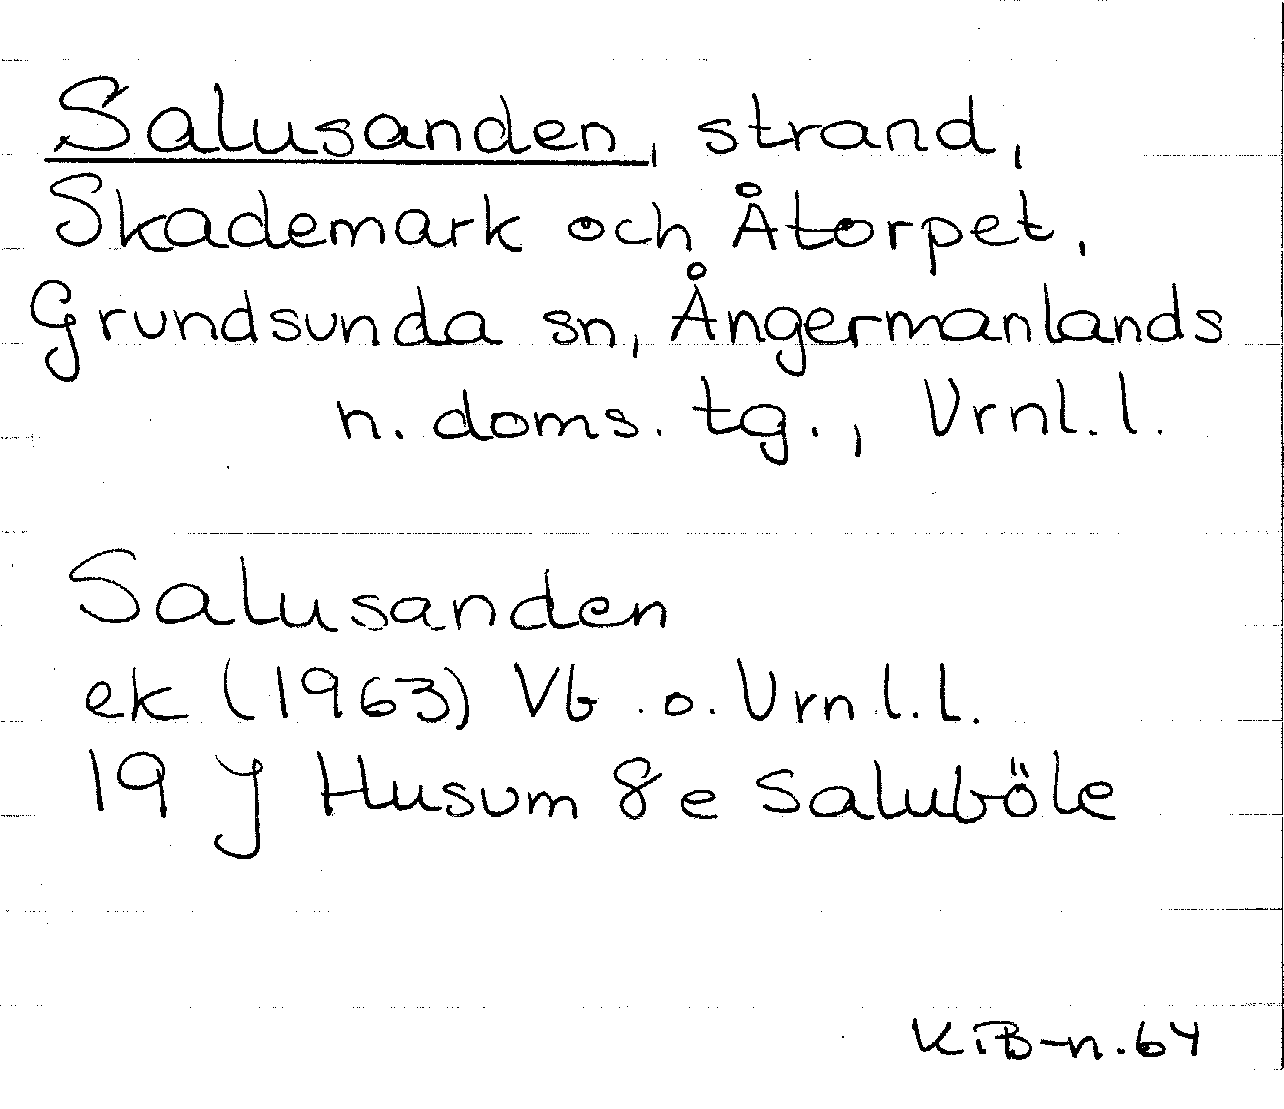 Salusanden, strand,
Skademark och Åtorpet,
Grundsunda sn, Ångermanlands
n. doms. tg., Vrnl. l.
Salusanden
ek (1963) Vb. o. Vrnl. l.
19 J Husum 8 e Saluböle
KiB-n. 64